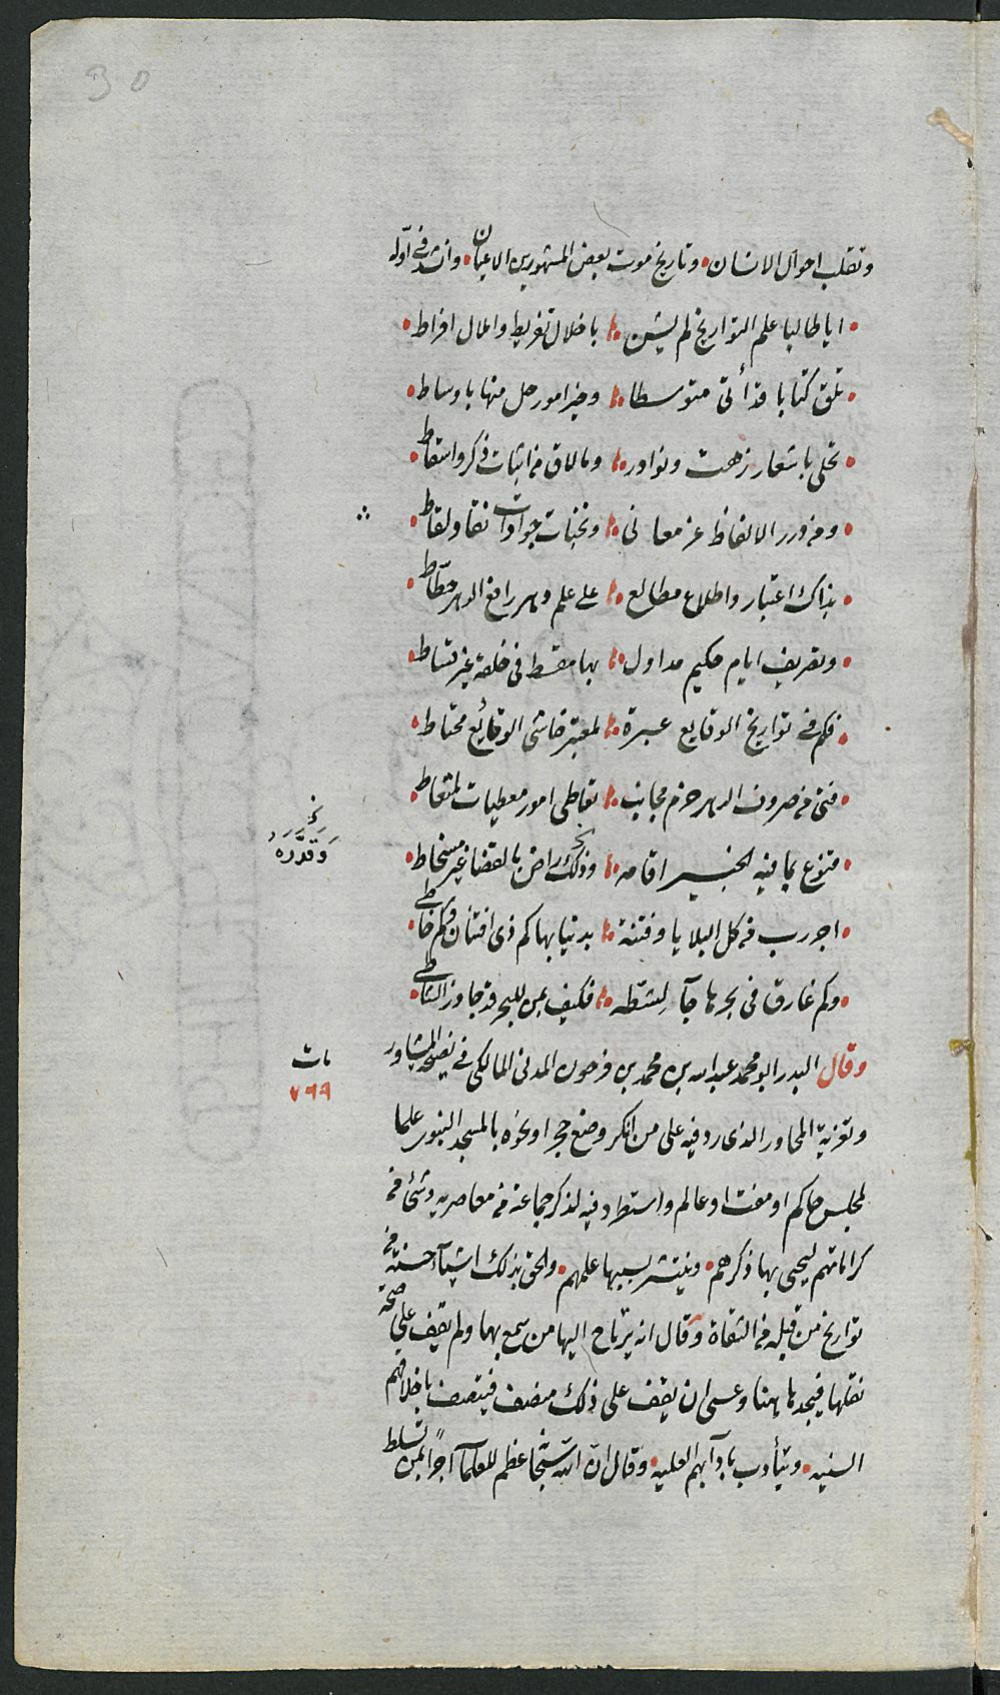 30
وتقلب احوال الانسان • وتاريخ موت بعض المشهورين الاعيان • وانشد في اوله
• ايا طالبا علم التواريخ لم يشن • باخلال تفريط واملال افراط •
• تلق كتابا قد أتى متوسطا • وخير امور حل منها باوساط •
• تحلى باشعار زهت ونوادر • وما لاق من اثبات ذكر واسقاط •
• ومن درر الالفاظ غر معانى • ونخبات جوادات نقا ولقاط •
• بذاك اعتبار واطلاع مطالع • على علم دهر رافع الدهر حطّاط •
• وتصريف ايام حكيم مداول • بها مقسط فى خلقه غير قساط •
• فكم فى تواريخ الوقايع عبرة • لمعتبر خاشى الوقائع محتاط •
• فتى من صروف الدهر حزم مجانب • تعاطى امور معطيات لمتعاط •
وقدره
• متنوع بما فيه الخبير اقامه • وذلك راض بالقضا غير مسخاط •
• اجرب من كل البلايا وفتنة • بدنيا بها كم ذى افتتان وكم خاطى •
• وكم غارق فى بحرها جآ لشطه • فكيف بمن للبحر قد جاوز الشاطى •
وقال البدر ابو محمد عبد الله بن محمد بن فرحون المدنى المالكى فى نصيحة المشاور
مات
٧٦٩
وتعزية المجاور الذى رد فيه على من انكر وضع حجر او نحوه بالمسجد النبوى علما
لمجلس حاكم او مفت او عالم واستطرد فيه لذكر جماعة من معاصريه وشئ من
كراماتهم ليحيى بها ذكرهم • وينتشر بسببها علمهم • والحق بذلك اشيآ حسنة من
تواريخ من قبله من الثقاة وقال انه يرتاح اليها من سمع بها ولم يقف على صحة
نقلها فيجدها هنا وعسى ان يقف على ذلك منصف فيتصف باخلاقهم
السنيه • ويتأدب بآدآبهم العليه • وقال ان الله سبحانه اعظم للعلمآ اجرا بمن تسلط